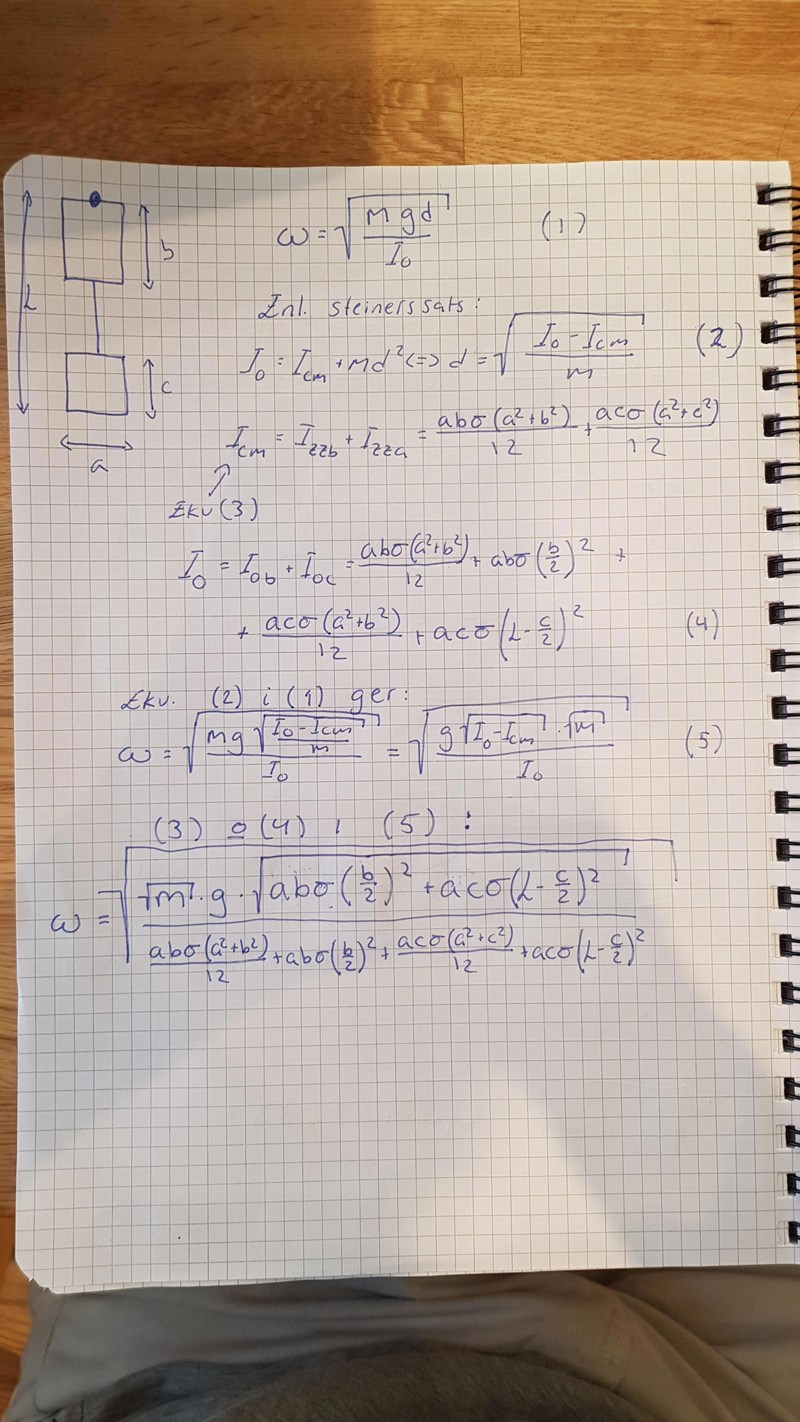 L
b
c
a
ω = √(Mgd / I₀) (1)
Enl. steinerssats:
I₀ = I_cm + Md² <=> d = √((I₀ - I_cm) / m) (2)
I_cm = I_zzb + I_zza = abσ(a²+b²)/12 + acσ(a²+c²)/12
↑
Ekv (3)
I₀ = I_0b + I_0c = abσ(a²+b²)/12 + abσ(b/2)² +
+ acσ(a²+b²)/12 + acσ(L-c/2)² (4)
Ekv. (2) i (1) ger:
ω = √(mg√((I₀-I_cm)/m) / I₀) = √(g√(I₀-I_cm)·√m / I₀) (5)
(3) o (4) i (5) :
ω = √(√m·g·√(abσ(b/2)² + acσ(L-c/2)²) / (abσ(a²+b²)/12 + abσ(b/2)² + acσ(a²+c²)/12 + acσ(L-c/2)²))